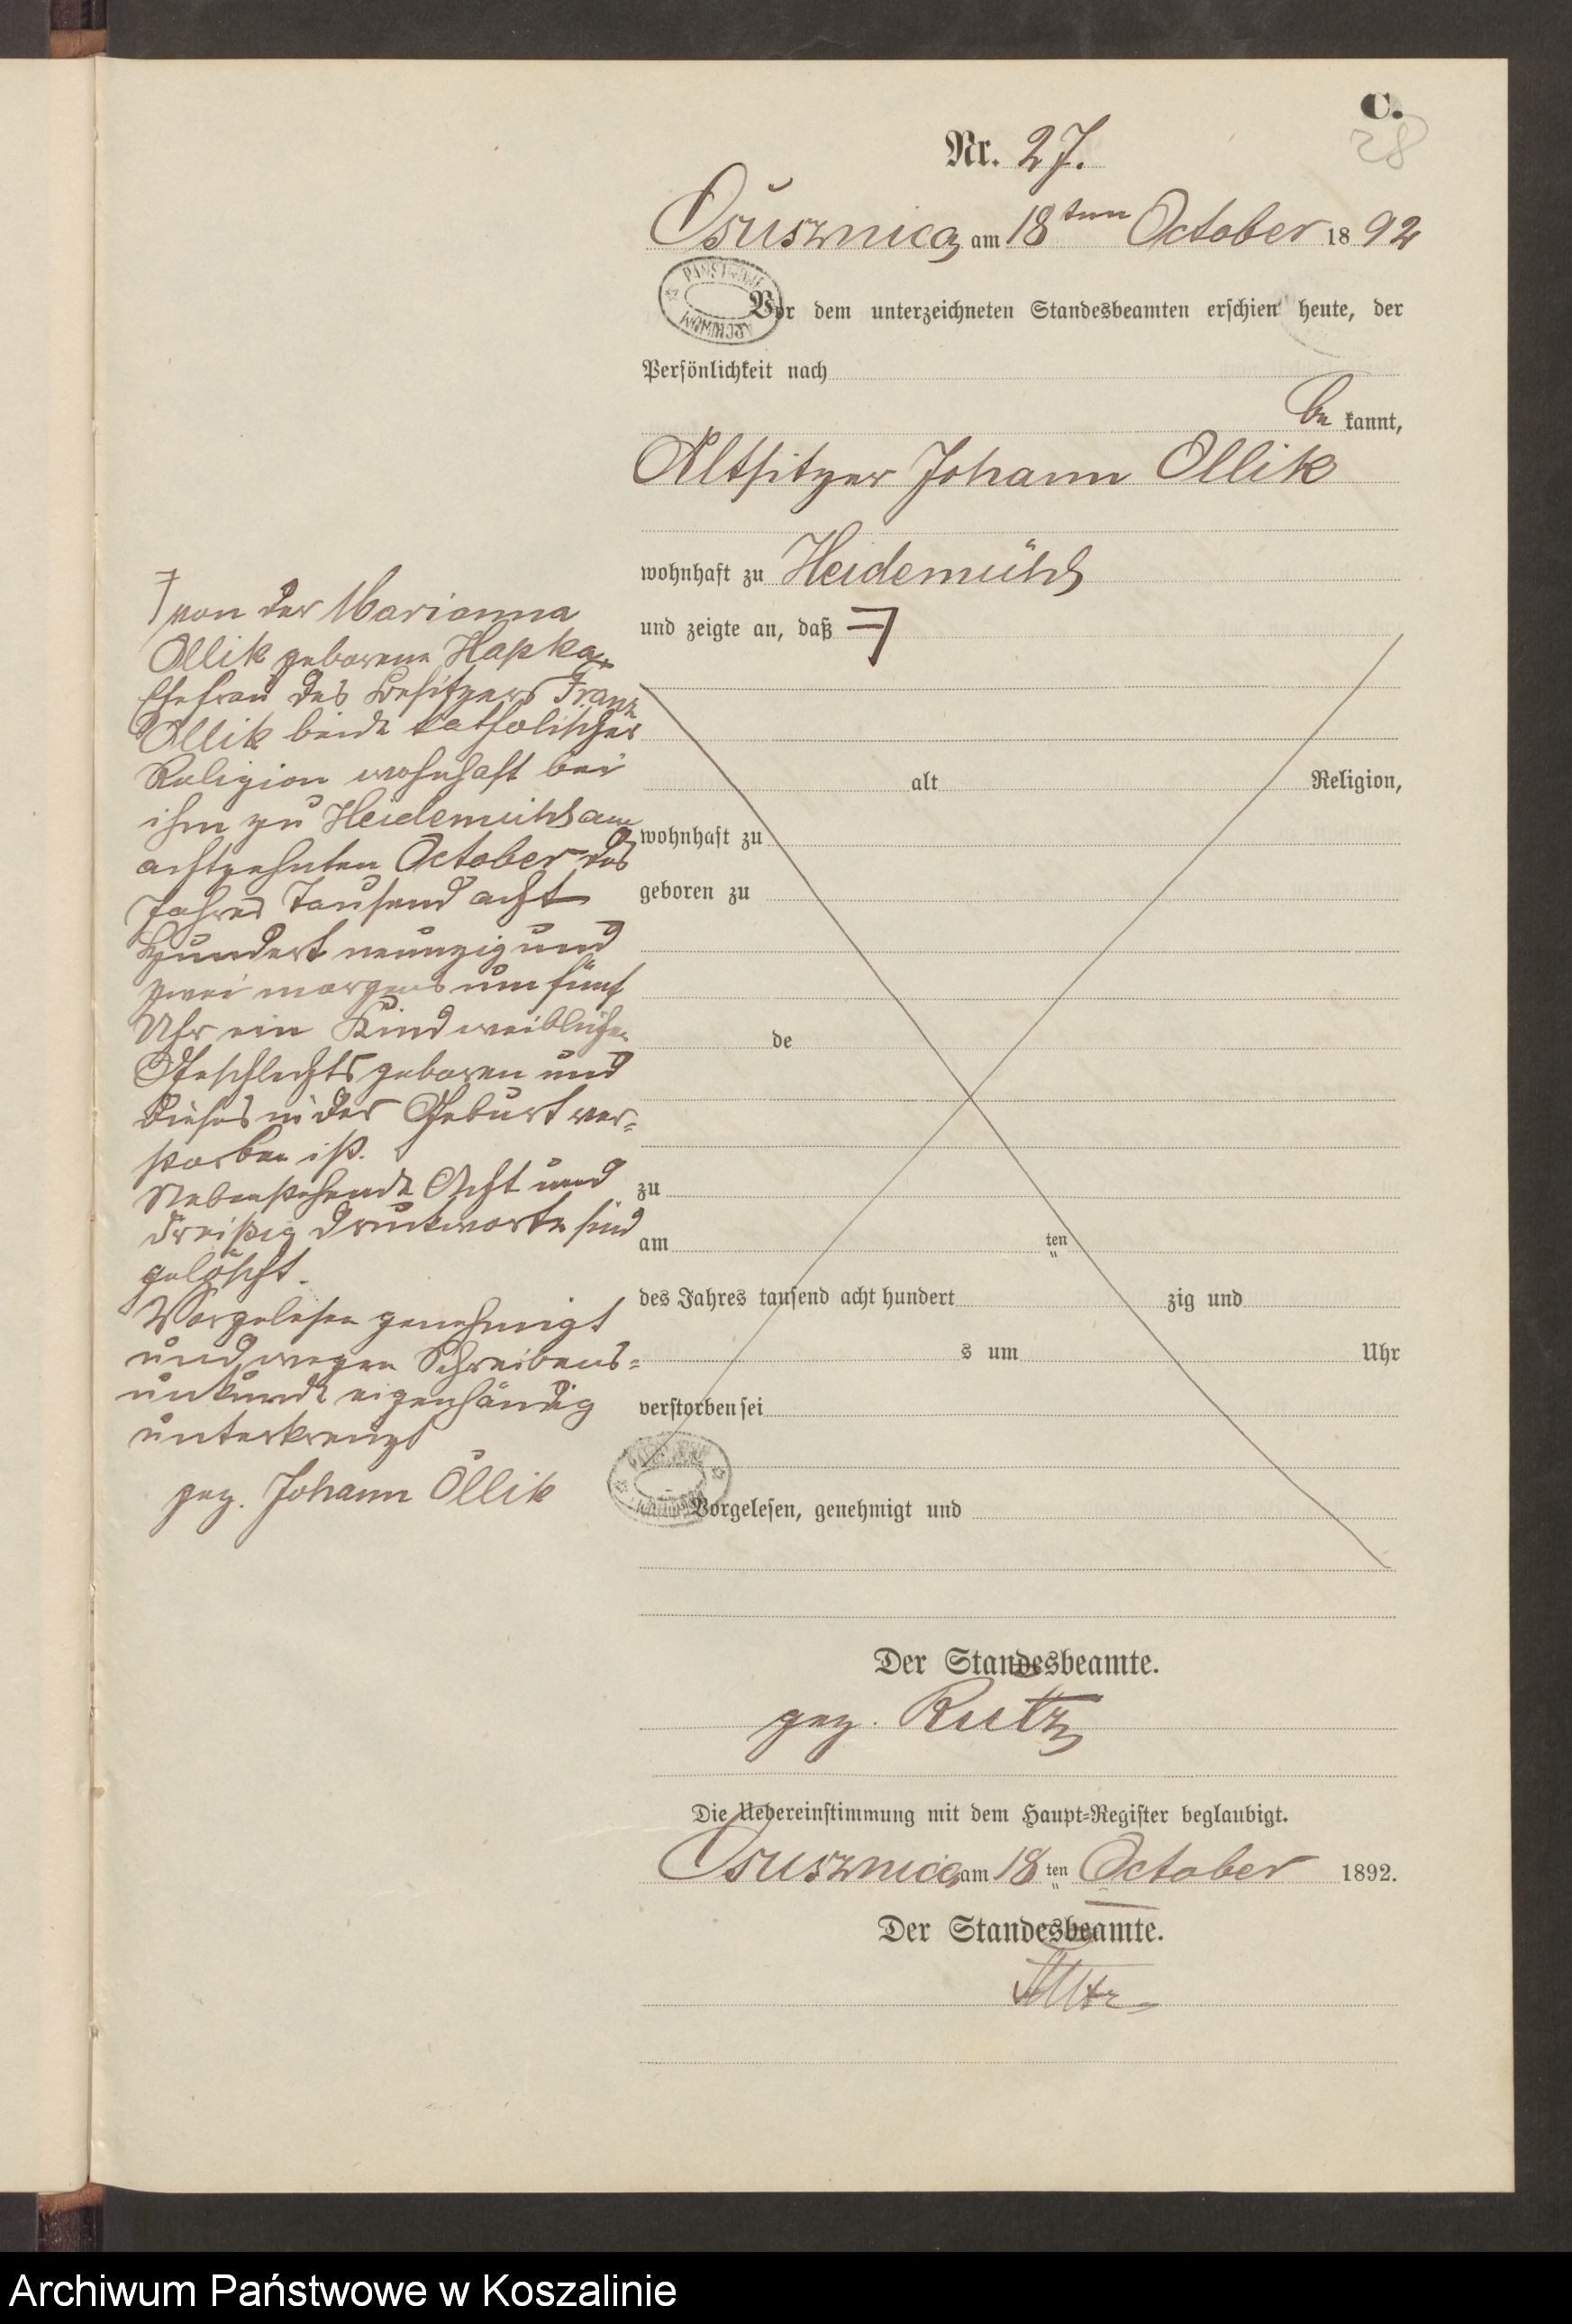 C.
28
Nr. 27.
Osusznica am 18ten October 1892
PAŃSTWOWE ARCHIWUM
Vor dem unterzeichneten Standesbeamten erschien heute, der
Persönlichkeit nach
be kannt,
Altsitzer Johann Ollik
wohnhaft zu Heidemühl
und zeigte an, daß
von der Marianna
Ollik geborene Hapka
Ehefrau des Besitzers Franz
Ollik beide katholischer
Religion wohnhaft bei
ihm zu Heidemühl am
achtzehnten October des
Jahres Tausend acht
Hundert neunzig und
zwei morgens um fünf
Uhr ein Kind weiblichen
Geschlechts geboren und
dieses in der Geburt ver=
storben ist.
Nebenstehende Acht und
dreißig Druckworte sind
gelöscht.
Vorgelesen genehmigt
und wegen Schreibens=
unkunde eigenhändig
unterkreuzt
gez. Johann Ollik
alt Religion,
wohnhaft zu
geboren zu
de
zu
am ten
des Jahres tausend acht hundert zig und
s um Uhr
verstorben sei
Vorgelesen, genehmigt und
Der Standesbeamte.
gez. Rutz
Die Uebereinstimmung mit dem Haupt=Register beglaubigt.
Osusznica am 18ten October 1892.
Der Standesbeamte.
Archiwum Państwowe w Koszalinie